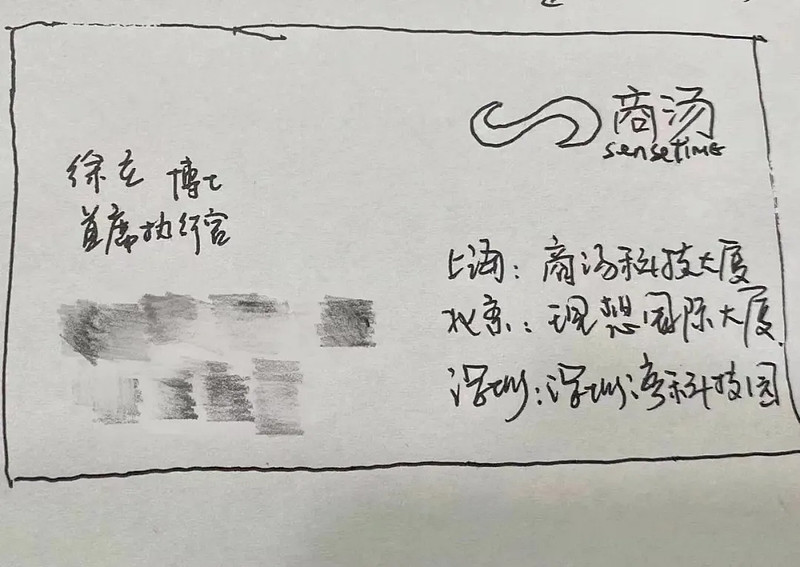 商汤
sensetime
徐立 博士
首席执行官
上海：商汤科技大厦
北京：理想国际大厦
深圳：深圳湾科技园